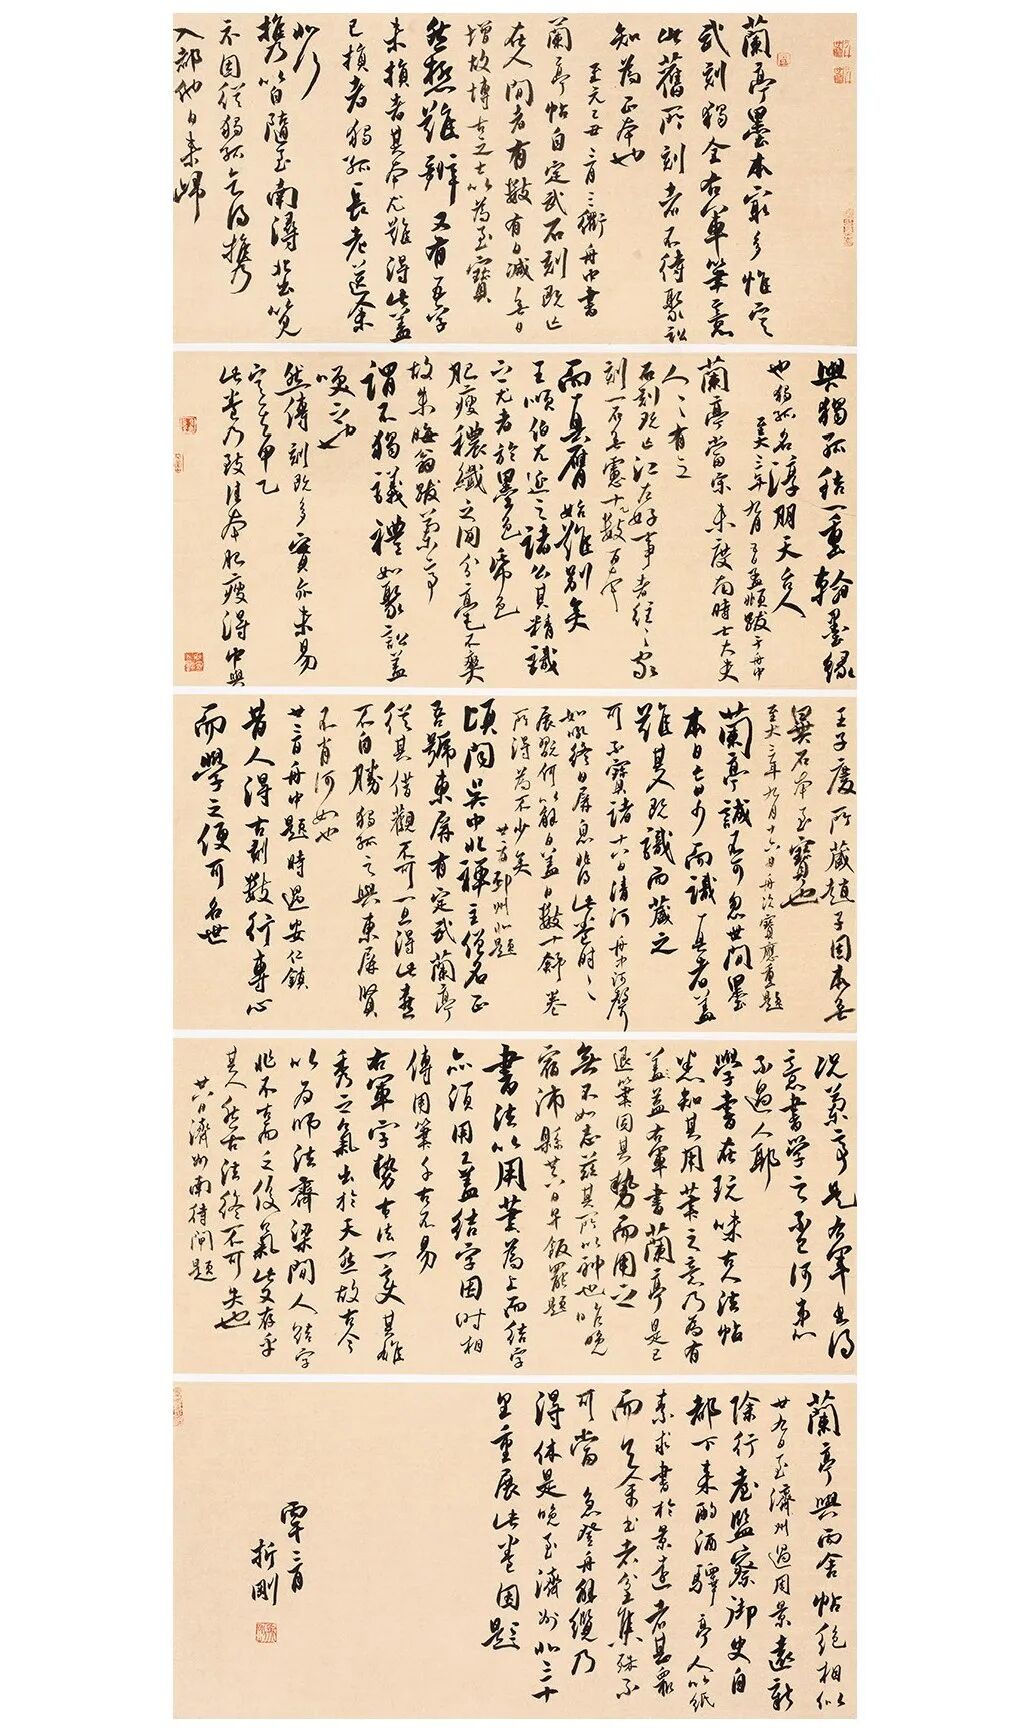 蘭亭墨本寂多惟定
武刻獨全右軍筆意
此舊所刻者不待聚訟
知為正本也
至元己丑三月三衢舟中書
蘭亭帖自定武石刻既亡
在人間者有數有日減無日
增故博古之士以為至寶
然極難辨又有五字
未損者其本尤難得此蓋
已損者獨孤長老送余
北行
攜以自隨至南潯北出覽
不因從獨孤乞得攜
入都他日來歸
與獨孤結一重翰墨緣
也獨孤名淳朋天台人
至大三年九月五日孟頫跋于舟中
蘭亭當宋未度南時士大夫
人人有之
石刻既亡江左好事者往々家
刻一石無慮十九數百本
而真贋始難別矣
王順伯尤延之諸公其精識
之尤者於墨色帋色
肥瘦穠纖之間分毫不爽
故朱晦翁跋蘭亭
謂不獨議禮如聚訟蓋
之也
然傳刻既多實亦未易
定其甲乙
此卷乃致佳本肥瘦得中與
王子慶所藏趙子固本無
異石本至寶也
至大三年九月十六日舟次寶應重題
蘭亭誠不可忽世間墨
本日亡日少而識真者蓋
難其人既識而藏之
可不寶諸十八日清河舟中河聲
如吼終日屏息非此卷時々
展翫何以解日蓋日數十舒卷
所得為不少矣廿二日邳州北題
頃聞吳中北禪主僧名正
吾號東屏有定武蘭亭
從其借觀不可一旦得此喜
不自勝獨孤之與東屏賢
不肖何如也
廿三日舟中題時過安仁鎮
昔人得古刻數行專心
而學之便可名世
況蘭亭是右軍書得
意書學之不已何患
不過人耶
學書在玩味古人法帖
悉知其用筆之意乃為有
益益右軍書蘭亭是已
退筆因其勢而用之
無不如志茲其所以神也昨晚
宿沛縣廿六日早飯罷題
書法以用筆為上而結字
亦須用工蓋結字因時相
傳用筆千古不易
右軍字勢古法一變其雄
秀之氣出於天然故古今
以為師法齊梁間人結字
非不古而乏俊氣此又存乎
其人然古法終不可失也
廿八日濟州南待閘題
蘭亭與丙舍帖絕相似
廿九日至濟州遇周景遠新
除行臺監察御史自
都下來酌酒驛亭人以紙
素求書於景遠者甚眾
而乞余書者坌集殊不
可當急登舟解纜乃
得休是晚至濟州北三十
里重展此卷因題
丙午二月
折剛